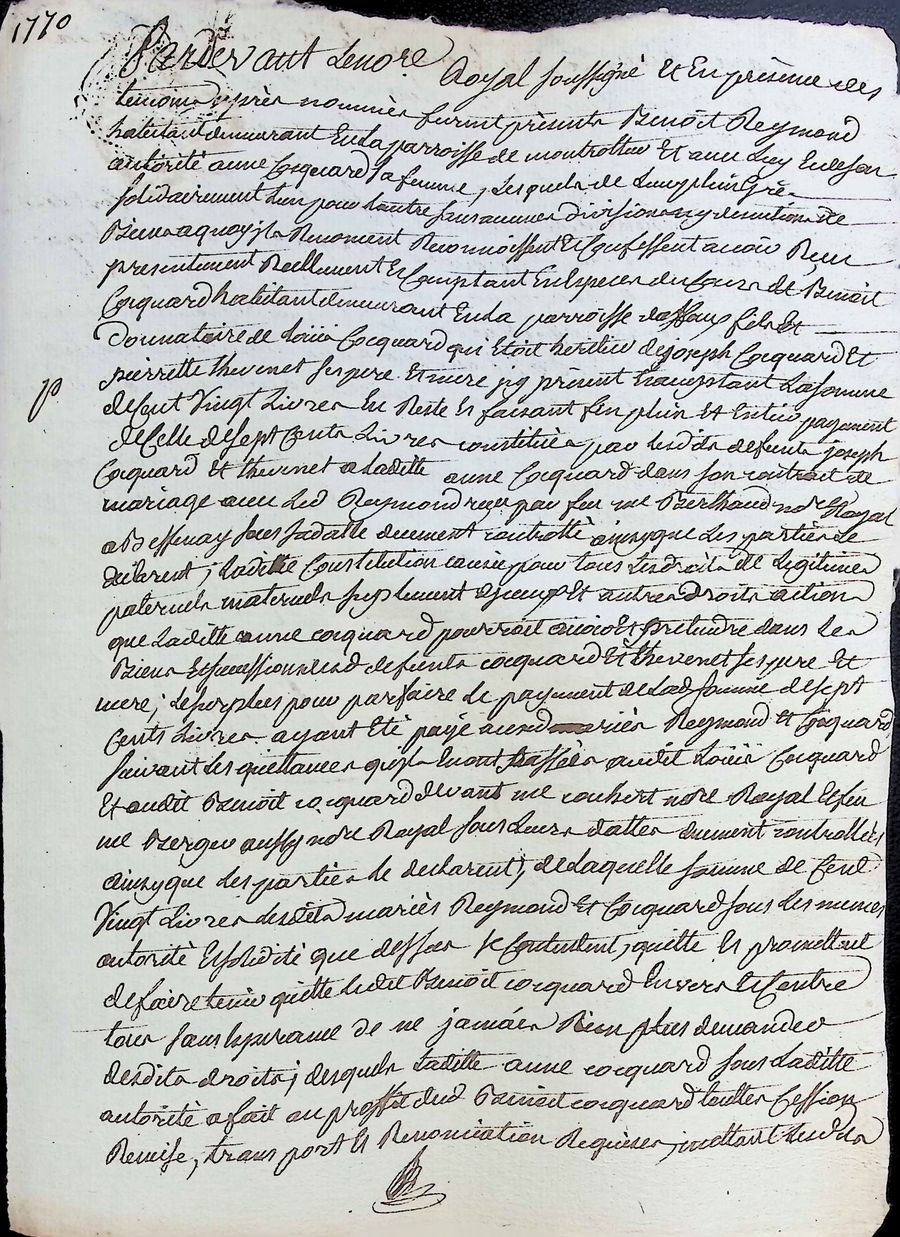 1770
Pardevant Le no.re Royal soussigné Et En présence des
temoins après nommés furent présents Benoit Reymond
habitant demeurant En la parroisse de montrottier Et avec Luy En de son
autorité anne Cocquard sa femme, Lesquels de Leur plein gré
solidairement L'un pour L'autre sans aucune division ny discution de
Biens a quoy ils Renoncent Reconnoissent Et Confessent avoir Reçu
presentement Réellement Et Comptant En Especes du Cours de Benoit
Cocquard habitant demeurant En la parroisse fils Et
Donnataire de Loüis Cocquard qui Etoit heritier de Joseph Cocquard Et
pierrette thevenet ses pere Et mere icy présent Lasomme
de Cent Vingt Livres En Reste Et faisant fin plein Et Entier payement
de Celle de sept Cents Livres constituée par lesdits defunts joseph
Cocquard Et thevenet a Laditte anne Cocquard dans son contrait de
mariage avec Led Reymond reçu par feu me Berthaud no.re Royal
a Bessenay sous sa datte duement controllé ainsy que Les parties Le
déclarent; Laditte Constitution causée pour tous Les droits de Legitimes
paternels maternels suplement d'iceux Et autres droits actions
que Laditte anne cocquard pourroit avoir Et prétendre dans Les
Biens Et successions desd defunts cocquard Et thevenet ses pere Et
mere; Le surplus pour parfaire Le payement de Lad somme de sept
Cents Livres ayant Eté payé auxd mariés Reymond Et Cocquard
suivant Les quittances qu'ils En ont passées audit Loüis Cocquard
Et audit Benoit cocquard devant me no.re Royal Et feu
me Berger aussy no.re Royal sous Leurs dattes duement controllées
ainsy que Les parties Le declarent; de Laquelle somme de Cent
Vingt Livres Lesdits mariés Reymond Et Cocquard sous Les memes
autorité Et solidité que dessus se Contentent, quitte Et promettent
de faire tenir quitte Ledit Benoit cocquard Envers Et Contre
tous de ne jamais Rien plus demander
desdits droits; desquels Laditte anne cocquard sous Laditte
autorité a fait au proffit dud Benoit cocquard touttes Cession
Remise, transport Et Renonciation Requises, mettant